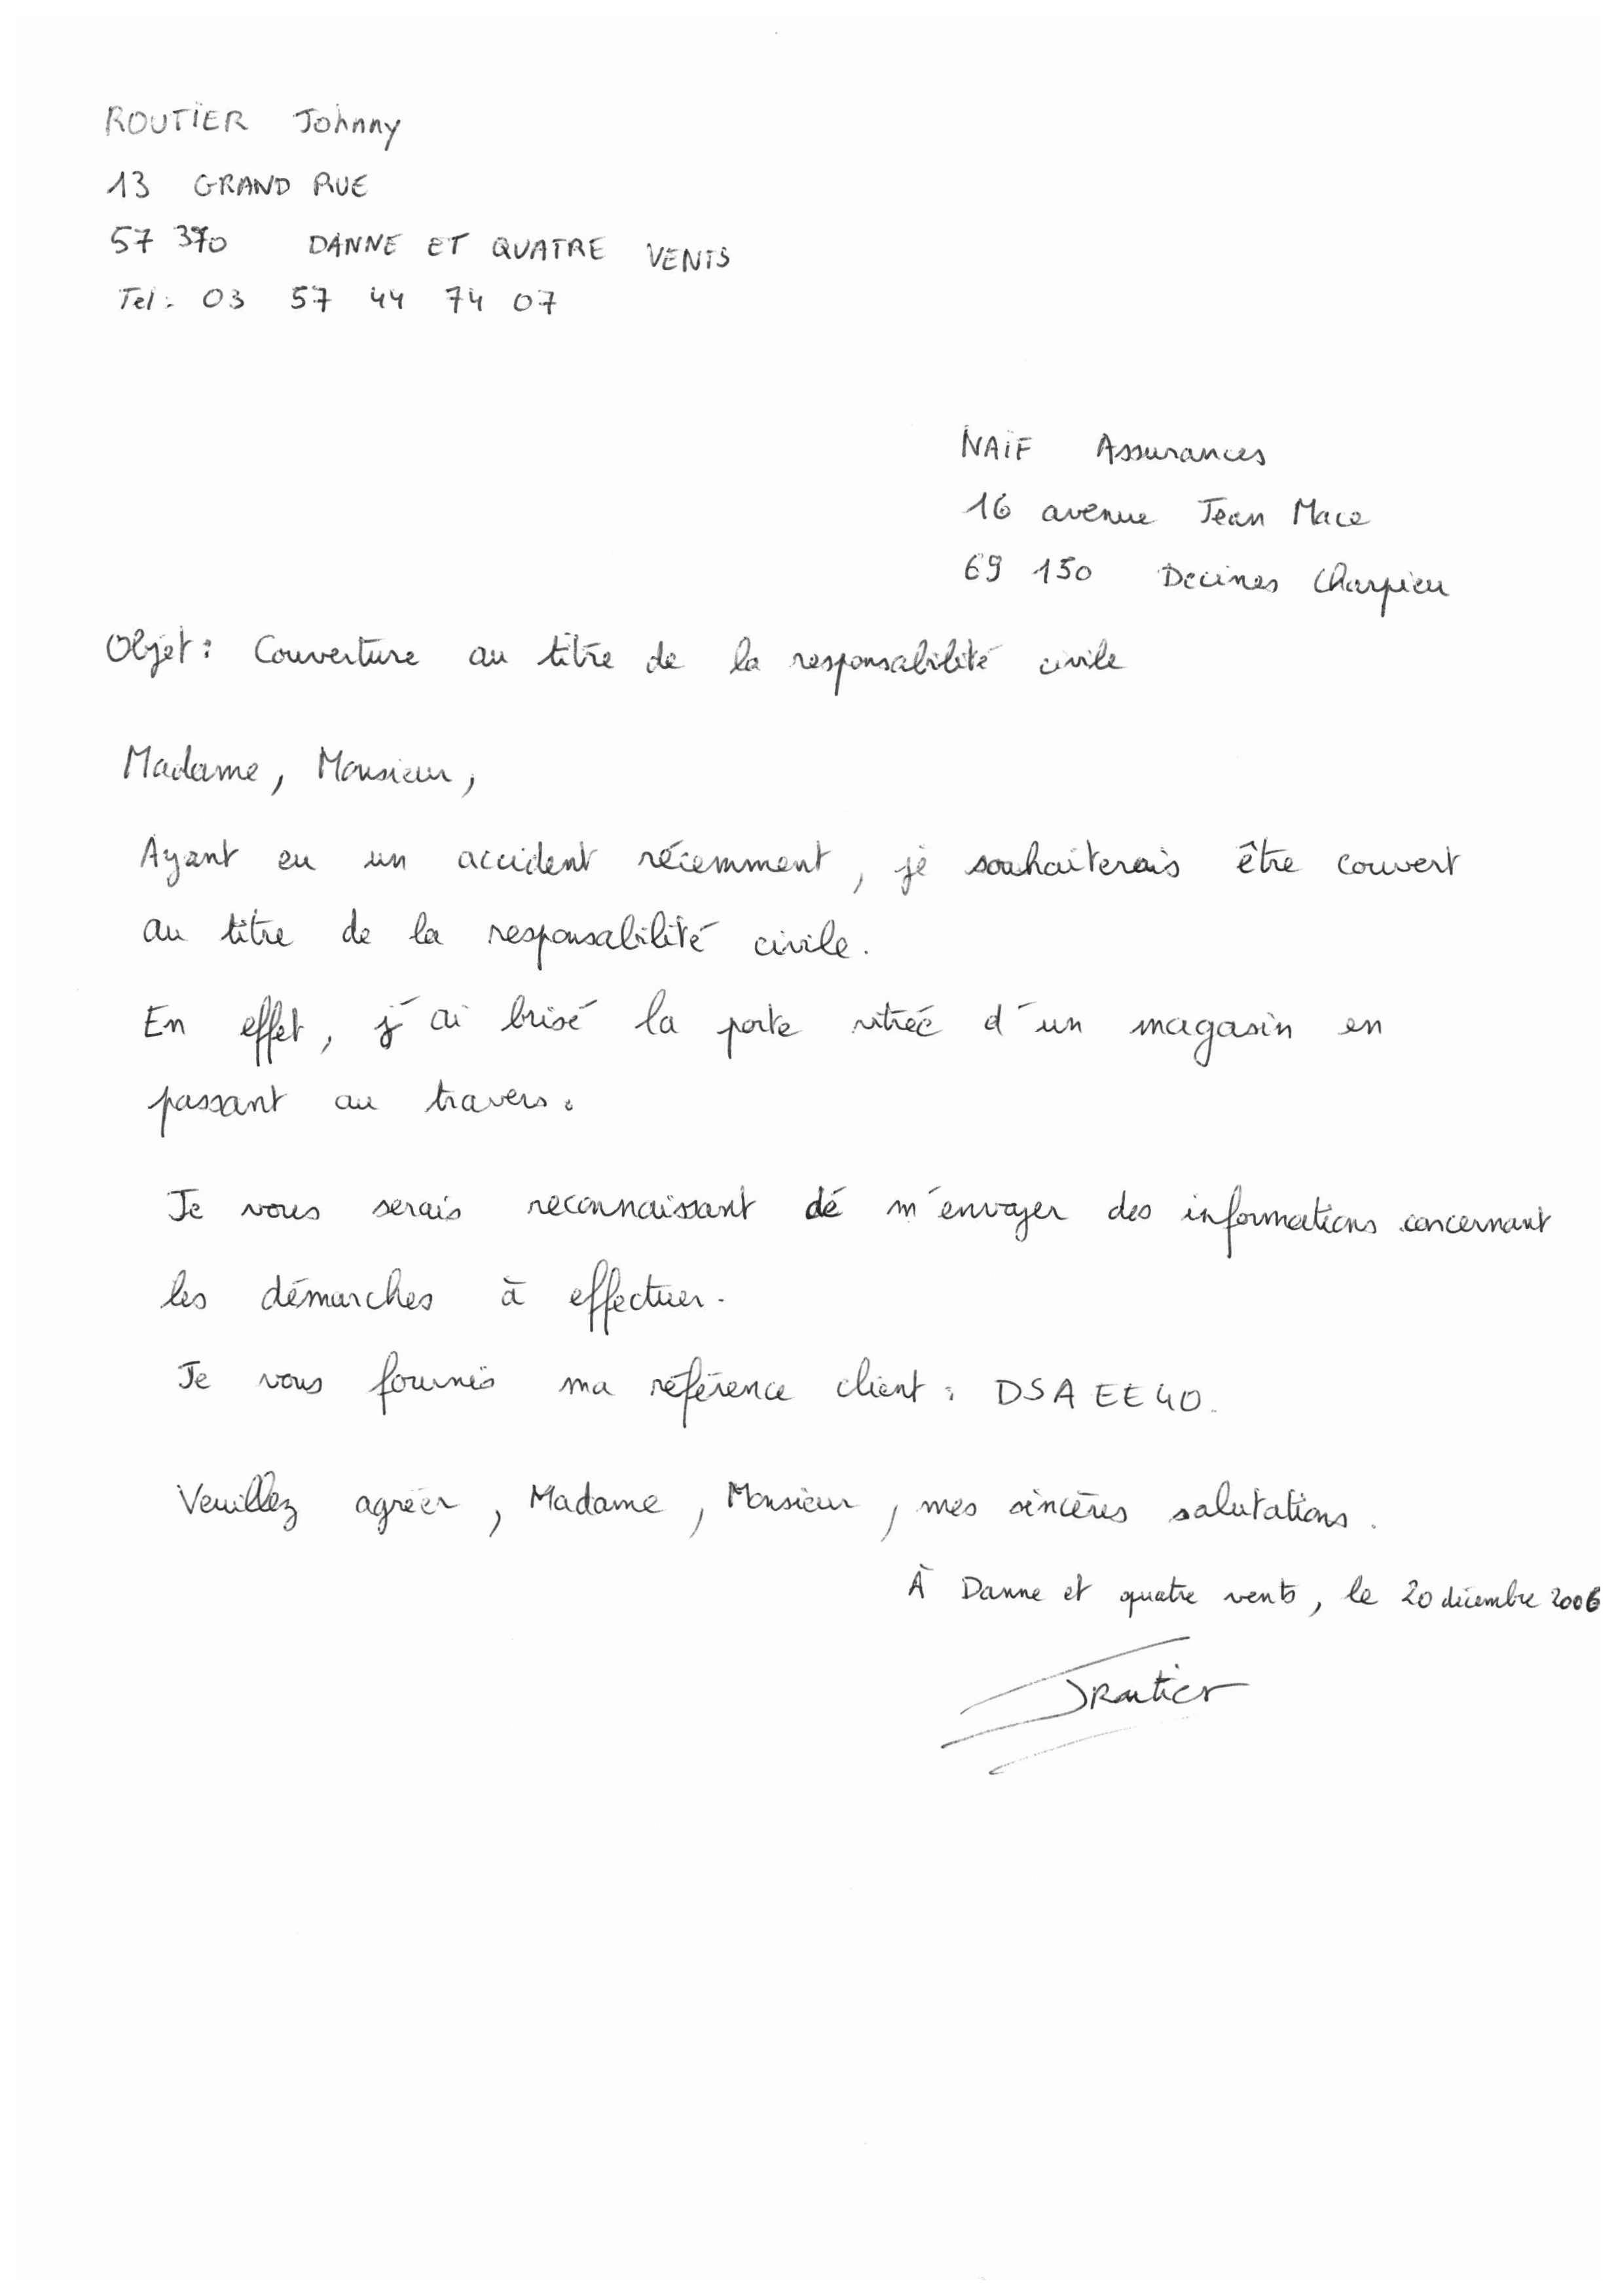 ROUTIER Johnny
13 GRAND RUE
57 370 DANNE ET QUATRE VENTS
Tel : 03 57 44 74 07
NAIF Assurances
16 avenue Jean Mace
69 150 Decines Charpieu
Objet : Couverture au titre de la responsabilité civile
Madame, Monsieur,
Ayant eu un accident récemment, je souhaiterais être couvert
au titre de la responsabilité civile.
En effet, j'ai brisé la porte vitrée d'un magasin en
passant au travers.
Je vous serais reconnaissant de m'envoyer des informations concernant
les démarches à effectuer.
Je vous fournis ma référence client : DSAEE40.
Veuillez agréer, Madame, Monsieur, mes sincères salutations.
À Danne et quatre vents, le 20 décembre 2006
JRoutier